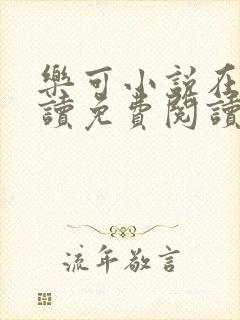 樂可小說在
讀免費閱讀
流年敬言